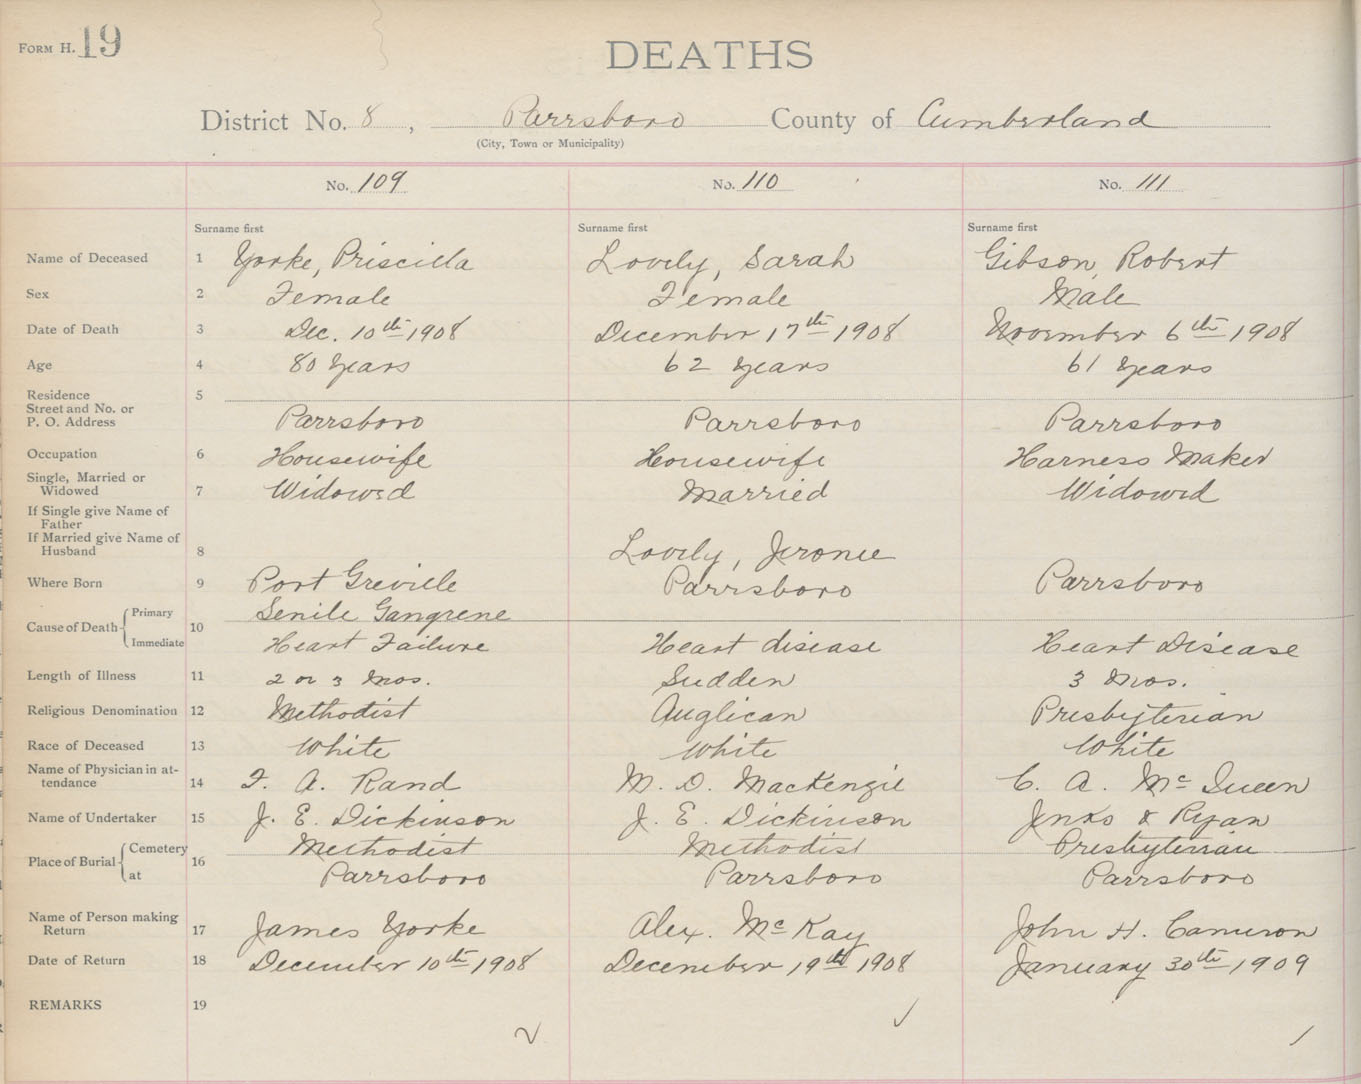 FORM H. 19
DEATHS
District No. 8, Parrsboro County of Cumberland
(City, Town or Municipality)
No. 109 No. 110 No. 111
Surname first Surname first Surname first
Name of Deceased 1 Yorke, Priscilla Lovely, Sarah Gibson, Robert
Sex 2 Female Female Male
Date of Death 3 Dec. 10th 1908 December 17th 1908 November 6th 1908
Age 4 80 Years 62 Years 61 Years
Residence 5
Street and No. or
P. O. Address Parrsboro Parrsboro Parrsboro
Occupation 6 Housewife Housewife Harness Maker
Single, Married or
Widowed 7 Widowed Married Widowed
If Single give Name of
Father
If Married give Name of
Husband 8 Lovely, Jerome
Where Born 9 Port Greville Parrsboro Parrsboro
Cause of Death Primary 10 Senile Gangrene
Immediate Heart Failure Heart disease Heart Disease
Length of Illness 11 2 or 3 Mos. Sudden 3 Mos.
Religious Denomination 12 Methodist Anglican Presbyterian
Race of Deceased 13 White White White
Name of Physician in at-
tendance 14 F. A. Rand M. D. MacKenzie C. A. McQueen
Name of Undertaker 15 J. E. Dickinson J. E. Dickinson Jenks & Ryan
Place of Burial Cemetery 16 Methodist Methodist Presbyterian
at Parrsboro Parrsboro Parrsboro
Name of Person making
Return 17 James Yorke Alex. McKay John H. Cameron
Date of Return 18 December 10th 1908 December 19th 1908 January 30th 1909
REMARKS 19